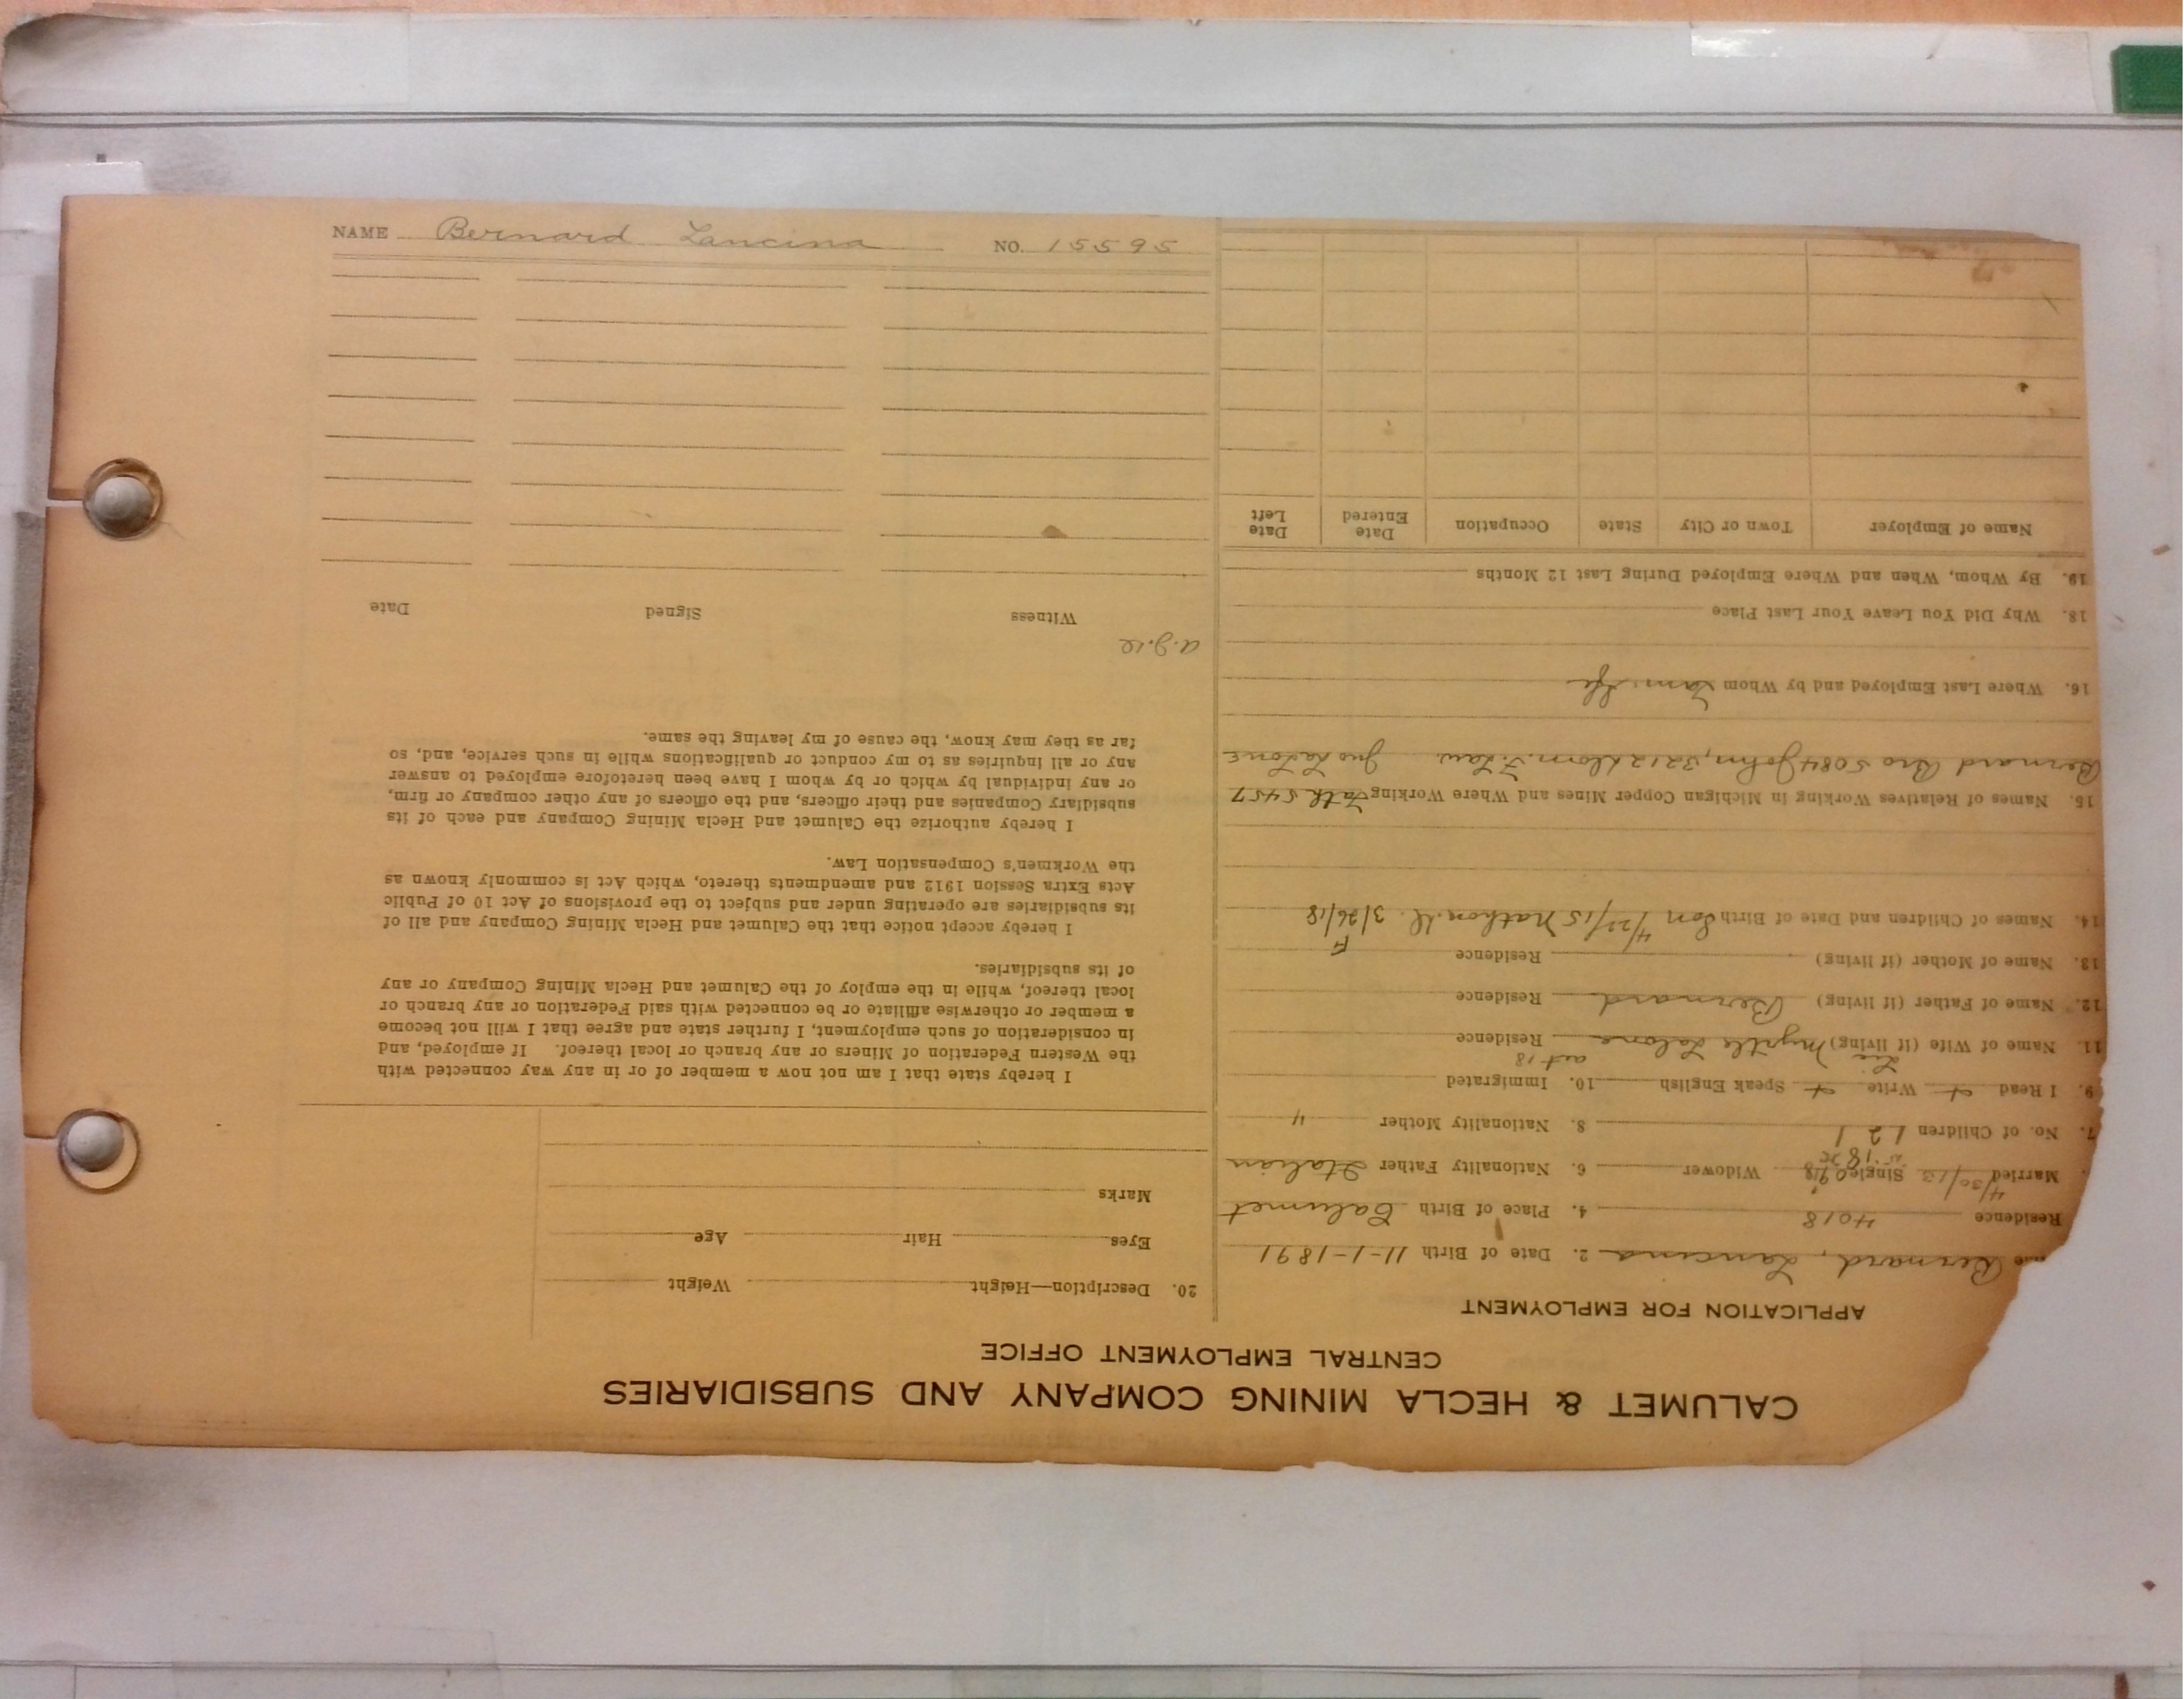 CALUMET & HECLA MINING COMPANY AND SUBSIDIARIES
CENTRAL EMPLOYMENT OFFICE
APPLICATION FOR EMPLOYMENT
Bernard, Lancina 2. Date of Birth 11-1-1891
Residence 4018 4. Place of Birth Calumet
Married 4/30/13 Single Widower 6. Nationality Father Italian
7. No. of Children 1 2 1 8. Nationality Mother "
9. I Read + Write + Speak English 10. Immigrated
11. Name of Wife (if living) Myrtle Lalone Residence
12. Name of Father (if living) Bernard Residence
13. Name of Mother (if living) Residence
14. Names of Children and Date of Birth Son 4/27/15 3/26/18
15. Names of Relatives Working in Michigan Copper Mines and Where Working Fath 5457
Bernard Bro 5084 John, 3212 F. Law
16. Where Last Employed and by Whom
18. Why Did You Leave Your Last Place
19. By Whom, When and Where Employed During Last 12 Months
Name of Employer Town or City State Occupation Date Entered Date Left
20. Description—Height Weight
Eyes Hair Age
Marks
I hereby state that I am not now a member of or in any way connected with
the Western Federation of Miners or any branch or local thereof. If employed, and
in consideration of such employment, I further state and agree that I will not become
a member or otherwise affiliate or be connected with said Federation or any branch or
local thereof, while in the employ of the Calumet and Hecla Mining Company or any
of its subsidiaries.
I hereby accept notice that the Calumet and Hecla Mining Company and all of
its subsidiaries are operating under and subject to the provisions of Act 10 of Public
Acts Extra Session 1912 and amendments thereto, which Act is commonly known as
the Workmen's Compensation Law.
I hereby authorize the Calumet and Hecla Mining Company and each of its
subsidiary Companies and their officers, and the officers of any other company or firm,
or any individual by which or by whom I have been heretofore employed to answer
any or all inquiries as to my conduct or qualifications while in such service, and, so
far as they may know, the cause of my leaving the same.
Witness Signed Date
NAME Bernard Lancina NO. 15595